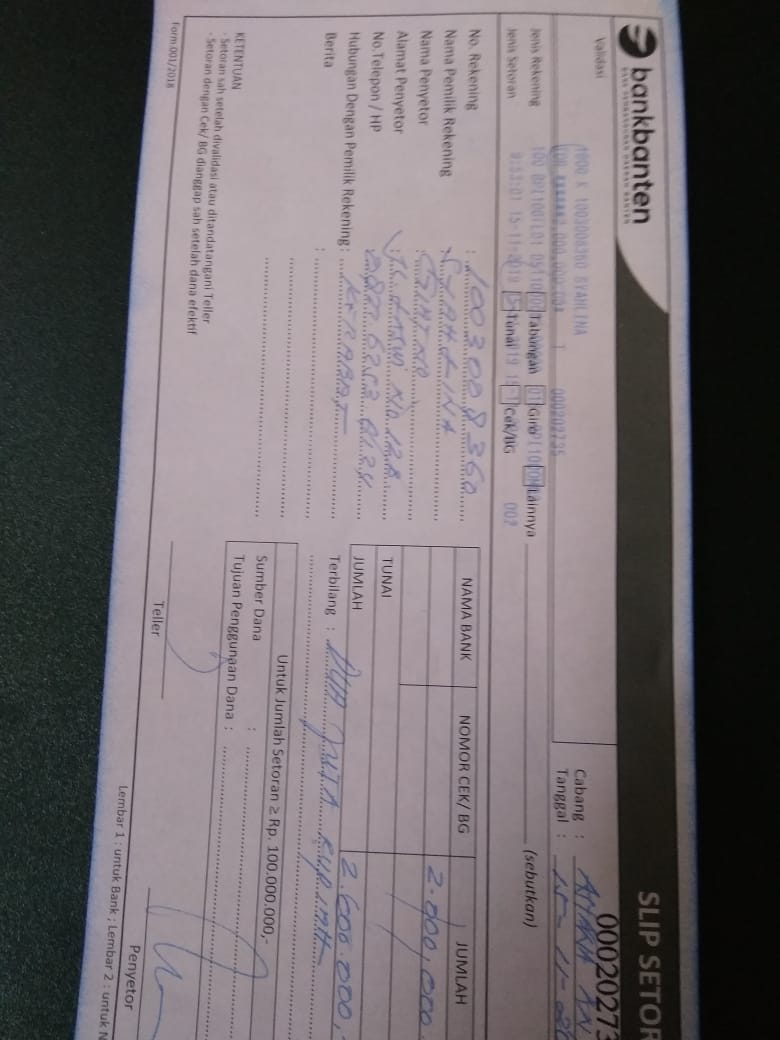 bankbanten
BANK PEMBANGUNAN DAERAH BANTEN
SLIP SETOR
00020273
Validasi
1000 K 1003008360 SYAHLINA
00020273
Cabang :
Tanggal : 15-11-
Jenis Rekening Tabungan Giro Lainnya (sebutkan)
Jenis Setoran Tunai Cek/BG
9:53:01 15-11-2019
007
No. Rekening : 1003008360
Nama Pemilik Rekening : SYAHLINA
Nama Penyetor :
Alamat Penyetor : NO 12B
No.Telepon / HP :
Hubungan Dengan Pemilik Rekening : KERABAT
Berita :
NAMA BANK NOMOR CEK/ BG JUMLAH
2.000.000
TUNAI
JUMLAH 2.000.000,-
Terbilang : DUA JUTA RUPIAH
Untuk Jumlah Setoran ≥ Rp. 100.000.000,-
Sumber Dana :
Tujuan Penggunaan Dana :
KETENTUAN
- Setoran sah setelah divalidasi atau ditandatangani Teller
- Setoran dengan Cek/ BG dianggap sah setelah dana efektif
Teller
Penyetor
Form.001/2018
Lembar 1 : untuk Bank ; Lembar 2 : untuk N